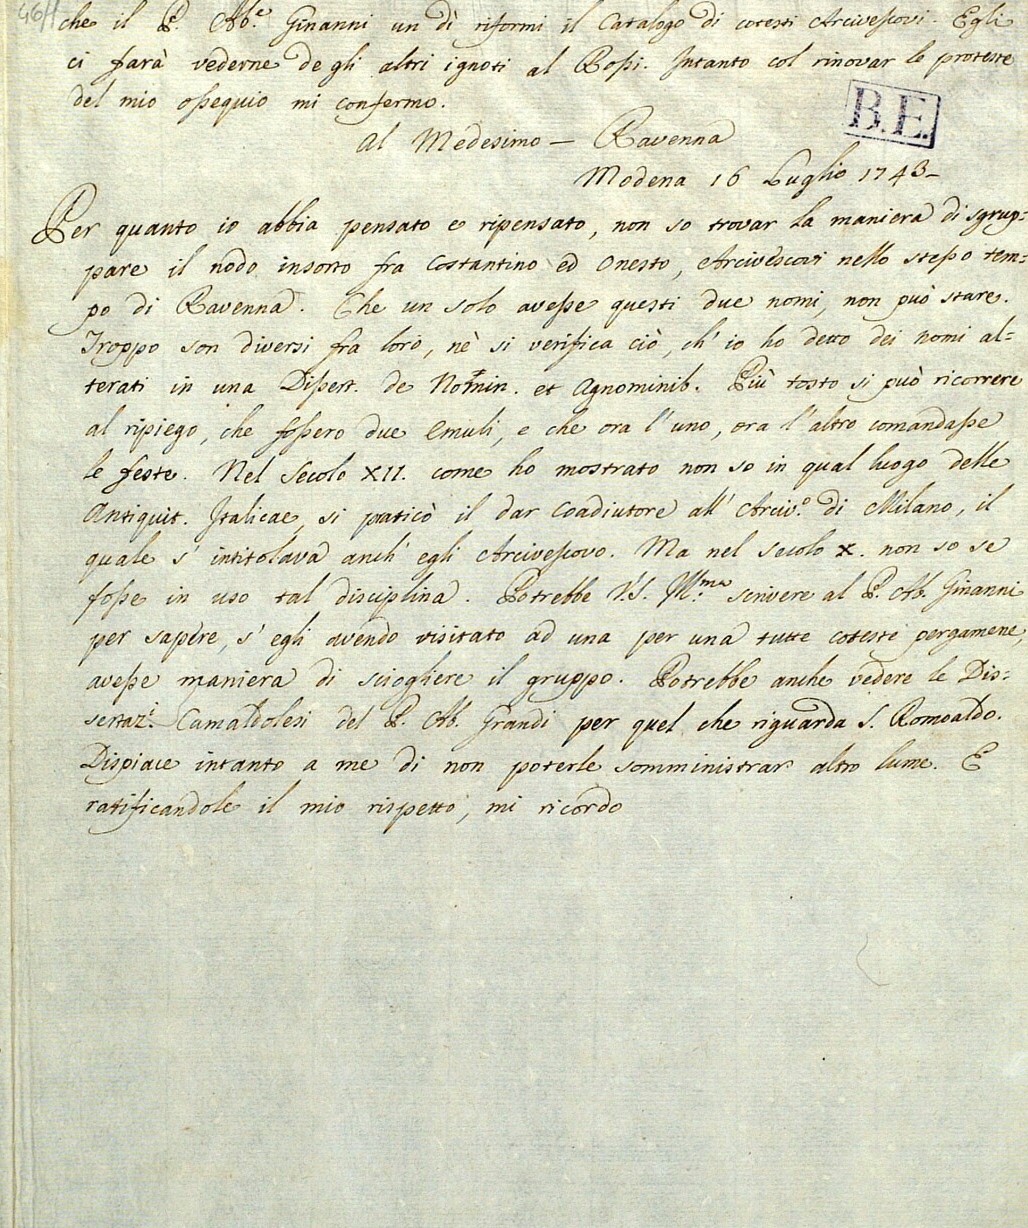 che il P. Ab.e Ginanni un dì riformi il Catalogo di cotesti Arcivescovi. Egli
ci farà vederne de gli altri ignoti al Rossi. Intanto col rinovar le proteste
del mio ossequio mi confermo.
B.E.
Al Medesimo — Ravenna
Modena 16 Luglio 1743-
Per quanto io abbia pensato e ripensato, non so trovar la maniera di sgrup=
pare il nodo insorto fra Costantino ed Onesto, Arcivescovi nello stesso tem=
po di Ravenna. Che un solo avesse questi due nomi, non può stare.
Troppo son diversi fra loro, nè si verifica ciò, ch' io ho detto dei nomi al=
terati in una Dissert. de Nomin. et Agnominib. Più tosto si può ricorrere
al ripiego, che fossero due emuli, e che ora l'uno, ora l'altro comandasse
le feste. Nel Secolo XII. come ho mostrato non so in qual luogo delle
Antiquit. Italicae, si praticò il dar Coadiutore all' Arciv.o di Milano, il
quale s' intitolava anch' egli Arcivescovo. Ma nel secolo X. non so se
fosse in uso tal disciplina. Potrebbe V.S. Ill.ma scrivere al P. Ab. Ginanni
per sapere, s' egli avendo visitato ad una per una tutte coteste pergamene,
avesse maniera di sciogliere il gruppo. Potrebbe anche vedere le Dis=
sertaz.i Camaldolesi del P. Ab. Grandi per quel che riguarda S. Romoaldo.
Dispiace intanto a me di non poterle somministrar altro lume. E
ratificandole il mio rispetto, mi ricordo